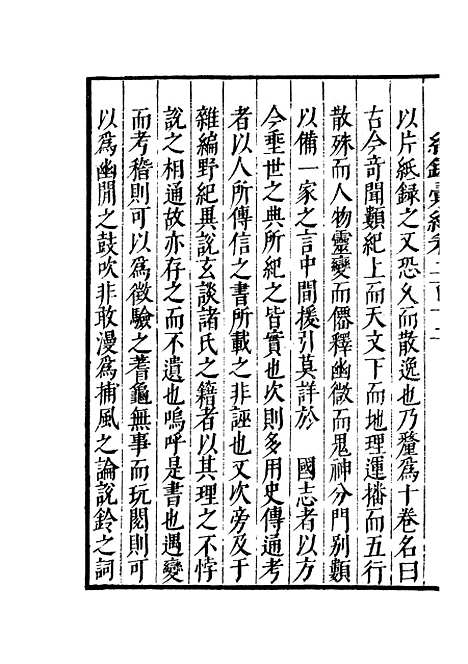 紀錄彙編卷
以片紙録之又恐久而散逸也乃釐爲十卷名曰
古今奇聞類紀上而天文下而地理運播而五行
散殊而人物靈變而僊釋幽微而鬼神分門别類
以備一家之言中間援引莫詳於　國志者以方
今垂世之典所紀之皆實也次則多用史傳通考
者以人所傳信之書所載之非誣也又次旁及于
雜編野紀異說玄談諸氏之籍者以其理之不悖
說之相通故亦存之而不遺也嗚呼是書也遇變
而考稽則可以爲徵驗之蓍龜無事而玩閱則可
以爲幽閒之鼓吹非敢漫爲捕風之論說鈴之詞